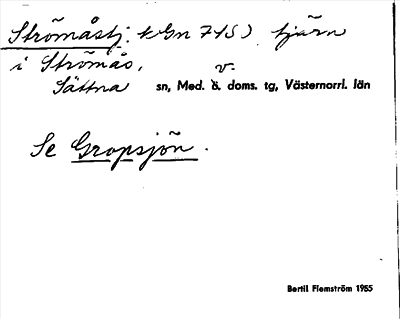 Strömåstj. (Gn 7 1S) tjärn
i Strömås,
Sättna sn, Med. v. doms. tg, Västernorrl. län
Se Gropsjön.
Bertil Flemström 1985